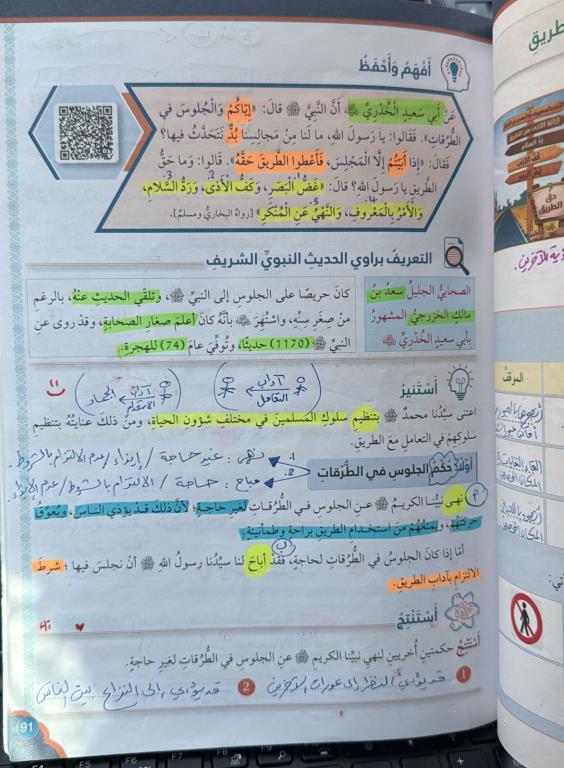 أَفْهَمُ وَأَحْفَظُ
عَنْ أَبي سَعيدٍ الْخُدْرِيِّ ﷺ، أَنَّ النَّبِيَّ ﷺ قالَ: «إِيّاكُمْ وَالْجُلوسَ في
الطُّرُقاتِ». فَقالُوا: يا رَسولَ اللهِ، ما لَنا مِنْ مَجالِسِنا بُدٌّ نَتَحَدَّثُ فيها؟
فَقالَ: «إِذا أَبَيْتُمْ إِلّا الْمَجْلِسَ، فَأَعْطوا الطَّريقَ حَقَّهُ». قالُوا: وَما حَقُّ
الطَّريقِ يا رَسولَ اللهِ؟ قالَ: «غَضُّ الْبَصَرِ، وَكَفُّ الْأَذى، وَرَدُّ السَّلامِ،
وَالْأَمْرُ بِالْمَعْروفِ، وَالنَّهْيُ عَنِ الْمُنْكَرِ» [رواهُ البخاريُّ ومسلم].
التعريفُ براوي الحديثِ النبويِّ الشريفِ
الصحابيُّ الجليلُ سَعدُ بنُ
مالكٍ الخزرجيُّ المشهورُ
بأبي سعيدٍ الخُدْريِّ
كانَ حريصًا على الجلوسِ إلى النبيِّ ﷺ، وتلقّي الحديثِ عنْهُ، بالرغمِ
منْ صِغَرِ سِنِّه، واشتُهرَ بأنَّهُ كانَ أعلمَ صغارِ الصحابةِ، وقدْ روى عنِ
النبيِّ ﷺ (1170) حديثًا، وتُوفّيَ عامَ (74) للهجرةِ.
أَسْتَنيرُ
آداب
التعامل
آداب
اعتنى سيِّدُنا محمدٌ ﷺ بتنظيمِ سلوكِ المسلمينَ في مختلفِ شؤونِ الحياةِ، ومنْ ذلكَ عنايتُهُ بتنظيمِ
سلوكِهِمْ في التعاملِ معَ الطريقِ.
أوّلًا: حُكمُ الجلوسِ في الطُّرُقاتِ
1. نهى: لغير حاجة / إيذاء / عدم الالتزام بالشروط.
2. مباح: حاجة / الالتزام بالشروط / عدم الإيذاء.
نهى نبيُّنا الكريمُ ﷺ عنِ الجلوسِ في الطُّرُقاتِ لغيرِ حاجةٍ؛ لأنَّ ذلكَ قدْ يؤذي الناسَ، ويُعوِّقُ
حركتَهُمْ، ويمنعُهُمْ منَ استخدامِ الطريقِ براحةٍ وطمأنينةٍ.
أمّا إذا كانَ الجلوسُ في الطُّرُقاتِ لحاجةٍ، فَقَدْ أباحَ لنا سيِّدُنا رسولُ اللهِ ﷺ أنْ نجلسَ فيها؛ شرطَ
الالتزامِ بآدابِ الطريقِ.
أَسْتَنْتِجُ
أَسْتَنْتِجُ حكمتينِ أُخريينِ لنهيِ نبيِّنا الكريمِ ﷺ عنِ الجلوسِ في الطُّرُقاتِ لغيرِ حاجةٍ.
1 قد يؤدي النظر إلى عورات الآخرين
2 قد يؤدي إلى النزاع بين الناس
91
الموقفُ